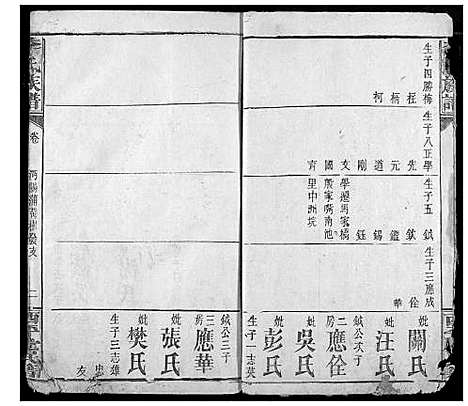 生子四勝梅
桂
柄
柯
生子八正學
先
元
道
剛
文
國
育
生子五
鉞
欽
鑑
錫
鈺
學遷馬家橋
嘴南池
里中洲坑
生子三應成
佺
華
妣關氏
妣汪氏
二房應佺
鉞公次子
妣吳氏
妣彭氏
生子一志英
三房應華
鉞公三子
妣張氏
妣樊氏
生子三志雄
忠
友
氏族譜
卷
二